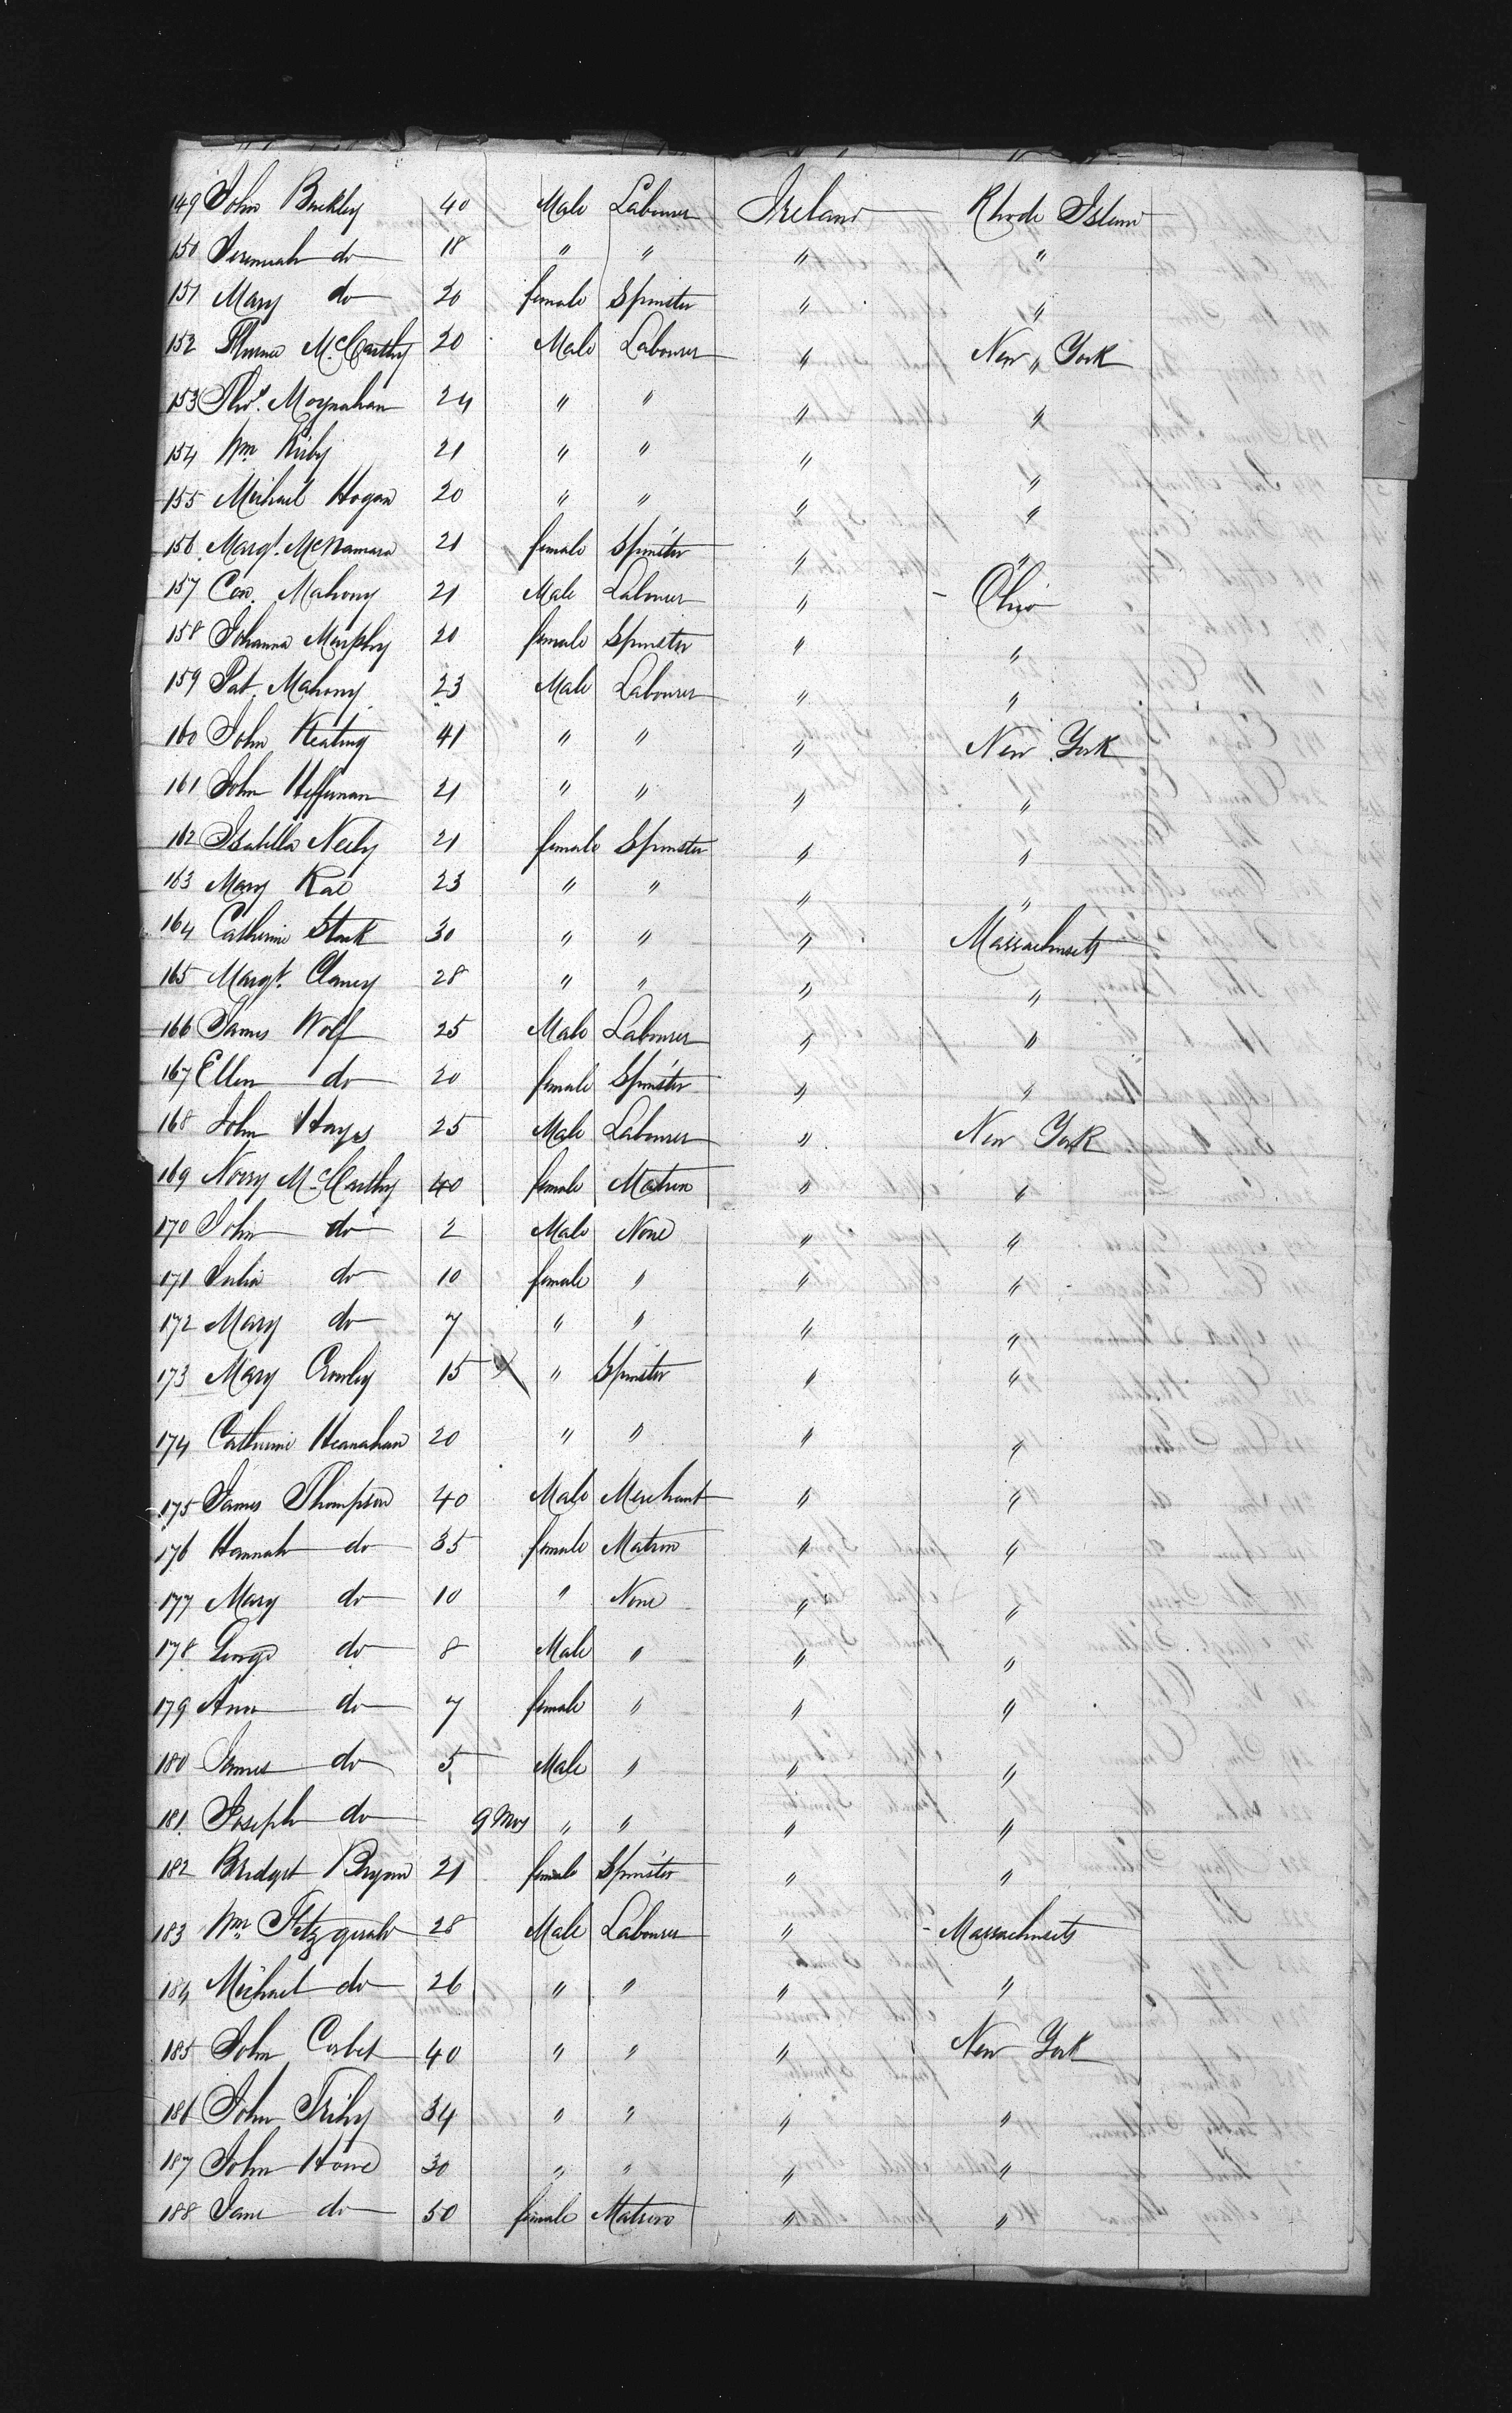 149 John Buckley 40 Male Labourer Ireland Rhode Island
150 Jeremiah do 18 " " " "
151 Mary do 20 female Spinster " "
152 McCarthy 20 Male Labourer " New York "
153 Thos. Moynahan 24 " " " "
154 Wm Kirby 21 " " " "
155 Michael Hogan 20 " " " "
156 Margt. McNamara 21 female Spinster " "
157 Con. Mahony 21 Male Labourer " - Ohio
158 Johanna Murphy 20 female Spinster " "
159 Pat. Mahony 23 Male Labourer " "
160 John Keating 41 " " " New York
161 John Heffernan 21 " " " "
162 Isabella Neely 21 female Spinster " "
163 Mary Rae 23 " " " "
164 Catherine Stack 30 " " " Massachusets
165 Margt. Clancy 28 " " " "
166 James Wolf 25 Male Labourer " "
167 Ellen do 20 female Spinster " "
168 John Hayes 25 Male Labourer " New York
169 Norry McCarthy 40 female Matron " "
170 John do 2 Male None " "
171 Julia do 10 female " " "
172 Mary do 7 " " " "
173 Mary Crowley 15 " Spinster " "
174 Catherine Heanahan 20 " " " "
175 James Thompson 40 Male Merchant " "
176 Hannah do 35 female Matron " "
177 Mary do 10 " None " "
178 George do 8 Male " " "
179 Ann do 7 female " " "
180 James do 5 Male " " "
181 Joseph do 9 Mos " " " "
182 Bridget Bryan 21 female Spinster " "
183 Wm Fitzgerald 28 Male Labourer " - Massachusets
184 Michael do 26 " " " "
185 John Corbet 40 " " " New York
186 John Trihy 34 " " " "
187 John Howe 30 " " " "
188 Jane do 50 female Matron " "